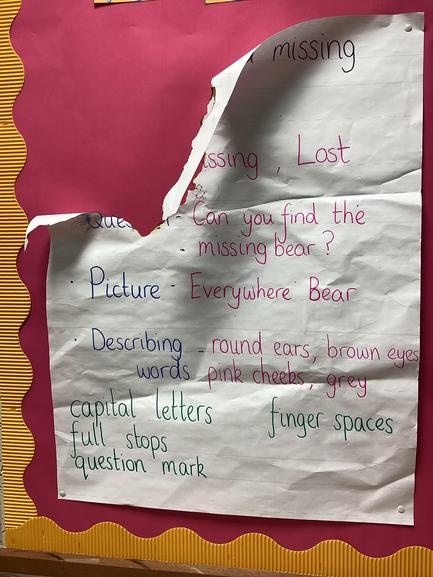 missing
Lost
Can you find the
- missing bear ?
· Picture - Everywhere Bear
· Describing - round ears, brown eyes
words pink cheeks, grey
capital letters finger spaces
full stops
question mark